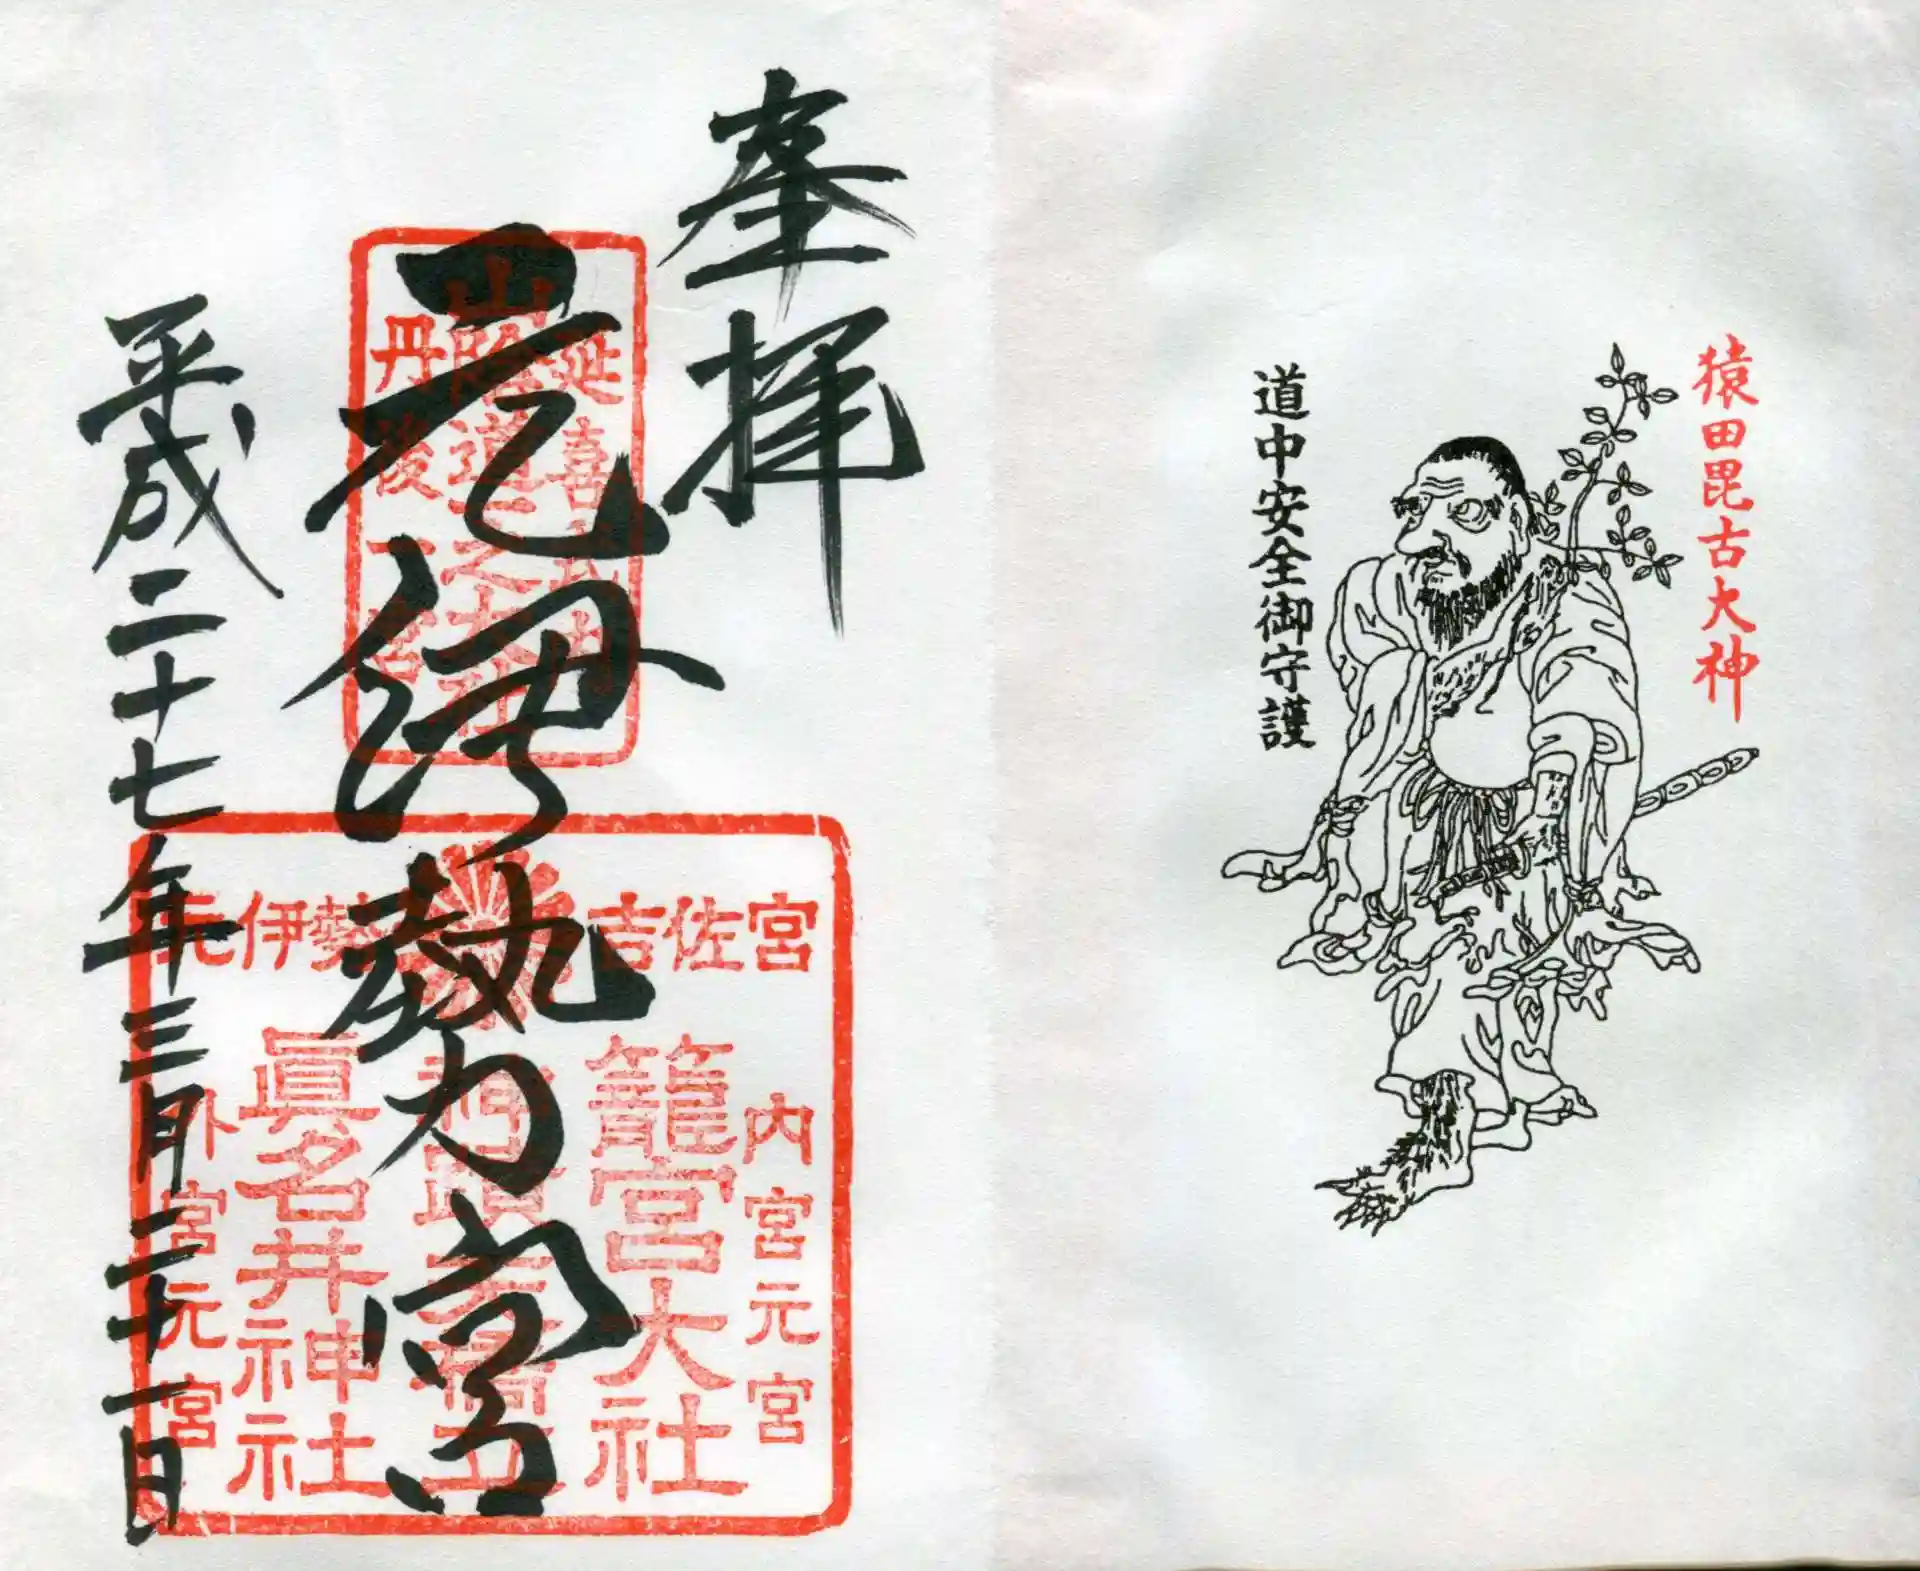 猿田毘古大神
道中安全御守護
奉拝
元伊勢宮
平成二十七年三月二十一日
延喜式内
山陰道之大社
丹後一宮
元伊勢 吉佐宮
内宮元宮
籠宮大社
眞名井神社
外宮元宮